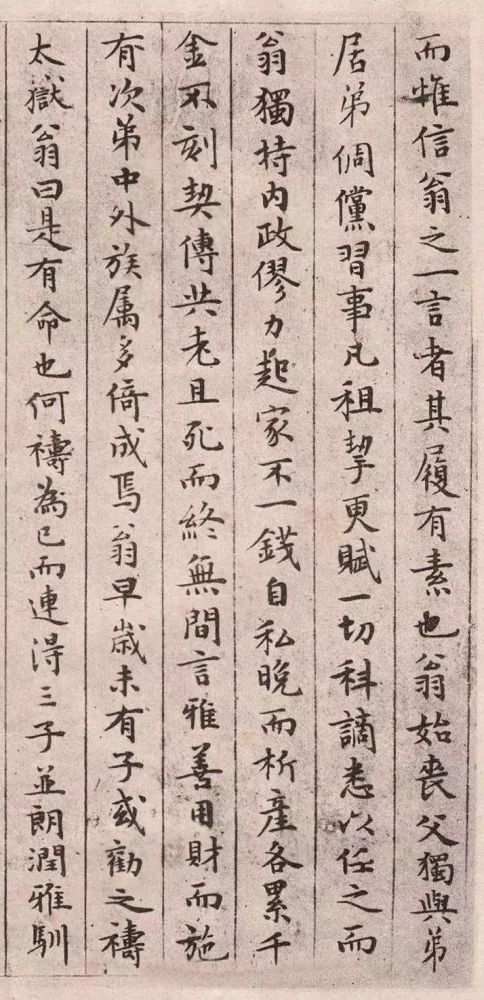 而惟信翁之一言者其履有素也翁始喪父獨與弟
居弟倜儻習事凡租挈更賦一切科謫悉以任之而
翁獨持內政僇力起家不一錢自私晚而析產各累千
金不刻契傳共老且死而終無間言雅善用財而施
有次弟中外族属多倚成焉翁早歲未有子或勸之禱
太嶽翁曰是有命也何禱為已而連得三子並朗潤雅馴